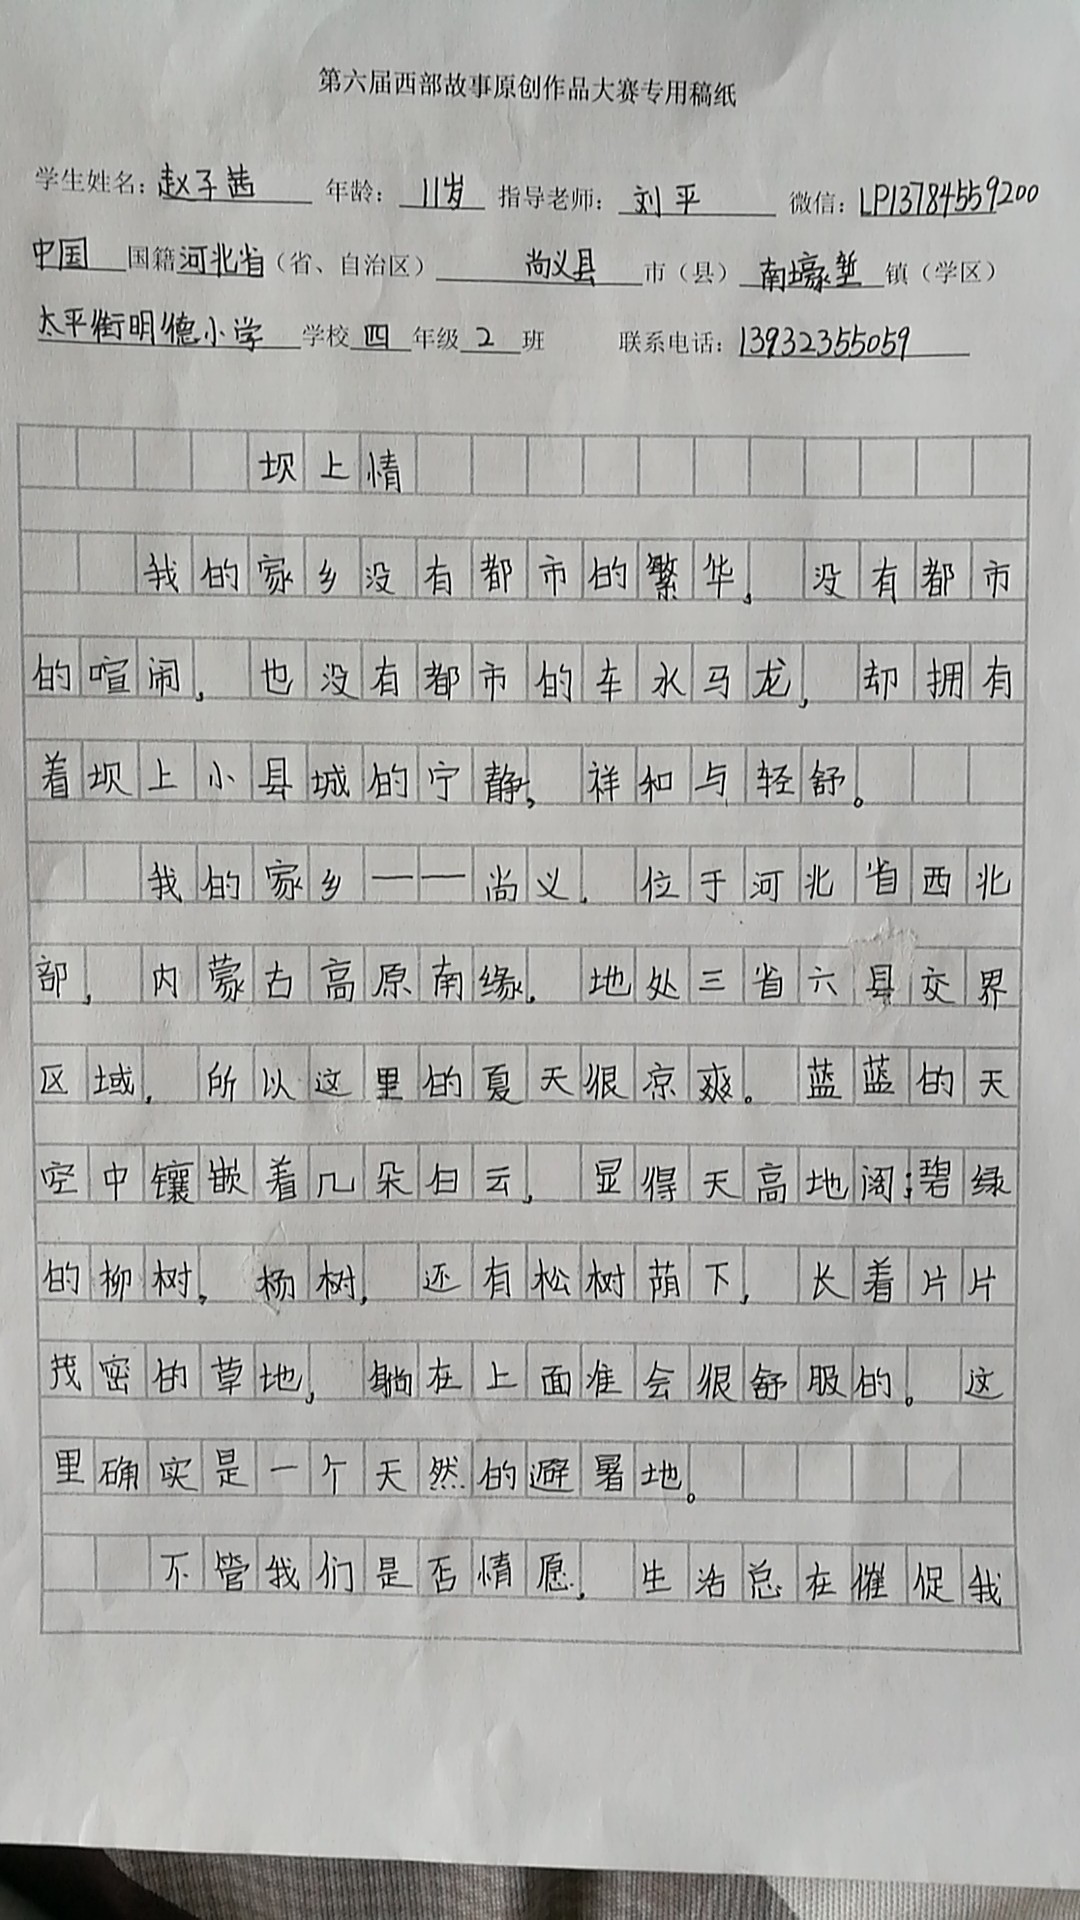 第六届西部故事原创作品大赛专用稿纸
学生姓名：赵子茜 年龄：11岁 指导老师：刘平 微信：LP13784559200
中国 国籍 河北省（省、自治区） 尚义县 市（县） 南壕堑 镇（学区）
太平街明德小学 学校 四 年级 2 班 联系电话：13932355059
坝上情
我的家乡没有都市的繁华，没有都市
的喧闹，也没有都市的车水马龙，却拥有
着坝上小县城的宁静，祥和与轻舒。
我的家乡——尚义，位于河北省西北
部，内蒙古高原南缘，地处三省六县交界
区域，所以这里的夏天很凉爽。蓝蓝的天
空中镶嵌着几朵白云，显得天高地阔；碧绿
的柳树，杨树，还有松树荫下，长着片片
茂密的草地，躺在上面准会很舒服的。这
里确实是一个天然的避暑地。
不管我们是否情愿，生活总在催促我